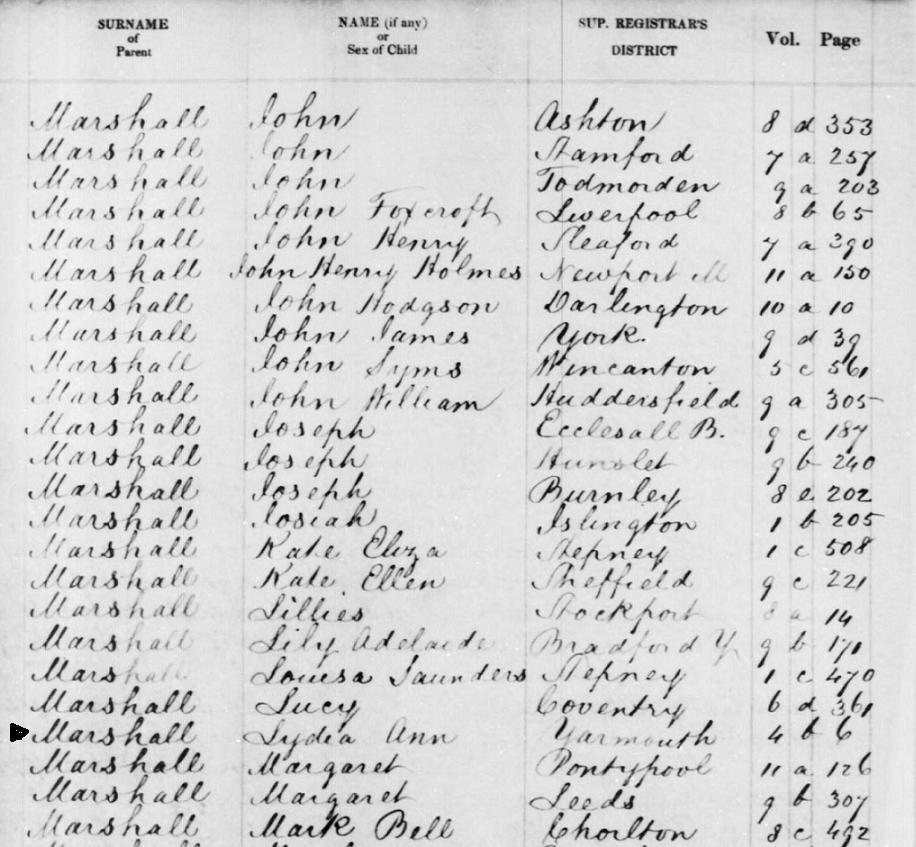 SURNAME of Parent NAME (if any) or Sex of Child SUP. REGISTRAR'S DISTRICT Vol. Page
Marshall John Ashton 8 d 353
Marshall John Stamford 7 a 257
Marshall John Todmorden 9 a 203
Marshall John Foxcroft Liverpool 8 b 65
Marshall John Henry Sleaford 7 a 390
Marshall John Henry Holmes Newport M 11 a 150
Marshall John Hodgson Darlington 10 a 10
Marshall John James York. 9 d 39
Marshall John Syms Wincanton 5 c 561
Marshall John William Huddersfield 9 a 305
Marshall Joseph Ecclesall B. 9 c 187
Marshall Joseph Hunslet 9 b 240
Marshall Joseph Burnley 8 e 202
Marshall Josiah Islington 1 b 205
Marshall Kate Eliza Stepney 1 c 508
Marshall Kate Ellen Sheffield 9 c 221
Marshall Lillies Stockport 8 a 14
Marshall Lily Adelaide Bradford Y 9 b 171
Marshall Louisa Saunders Stepney 1 c 470
Marshall Lucy Coventry 6 d 361
Marshall Lydia Ann Yarmouth 4 b 6
Marshall Margaret Pontypool 11 a 126
Marshall Margaret Leeds 9 b 307
Marshall Mark Bell Chorlton 8 c 492